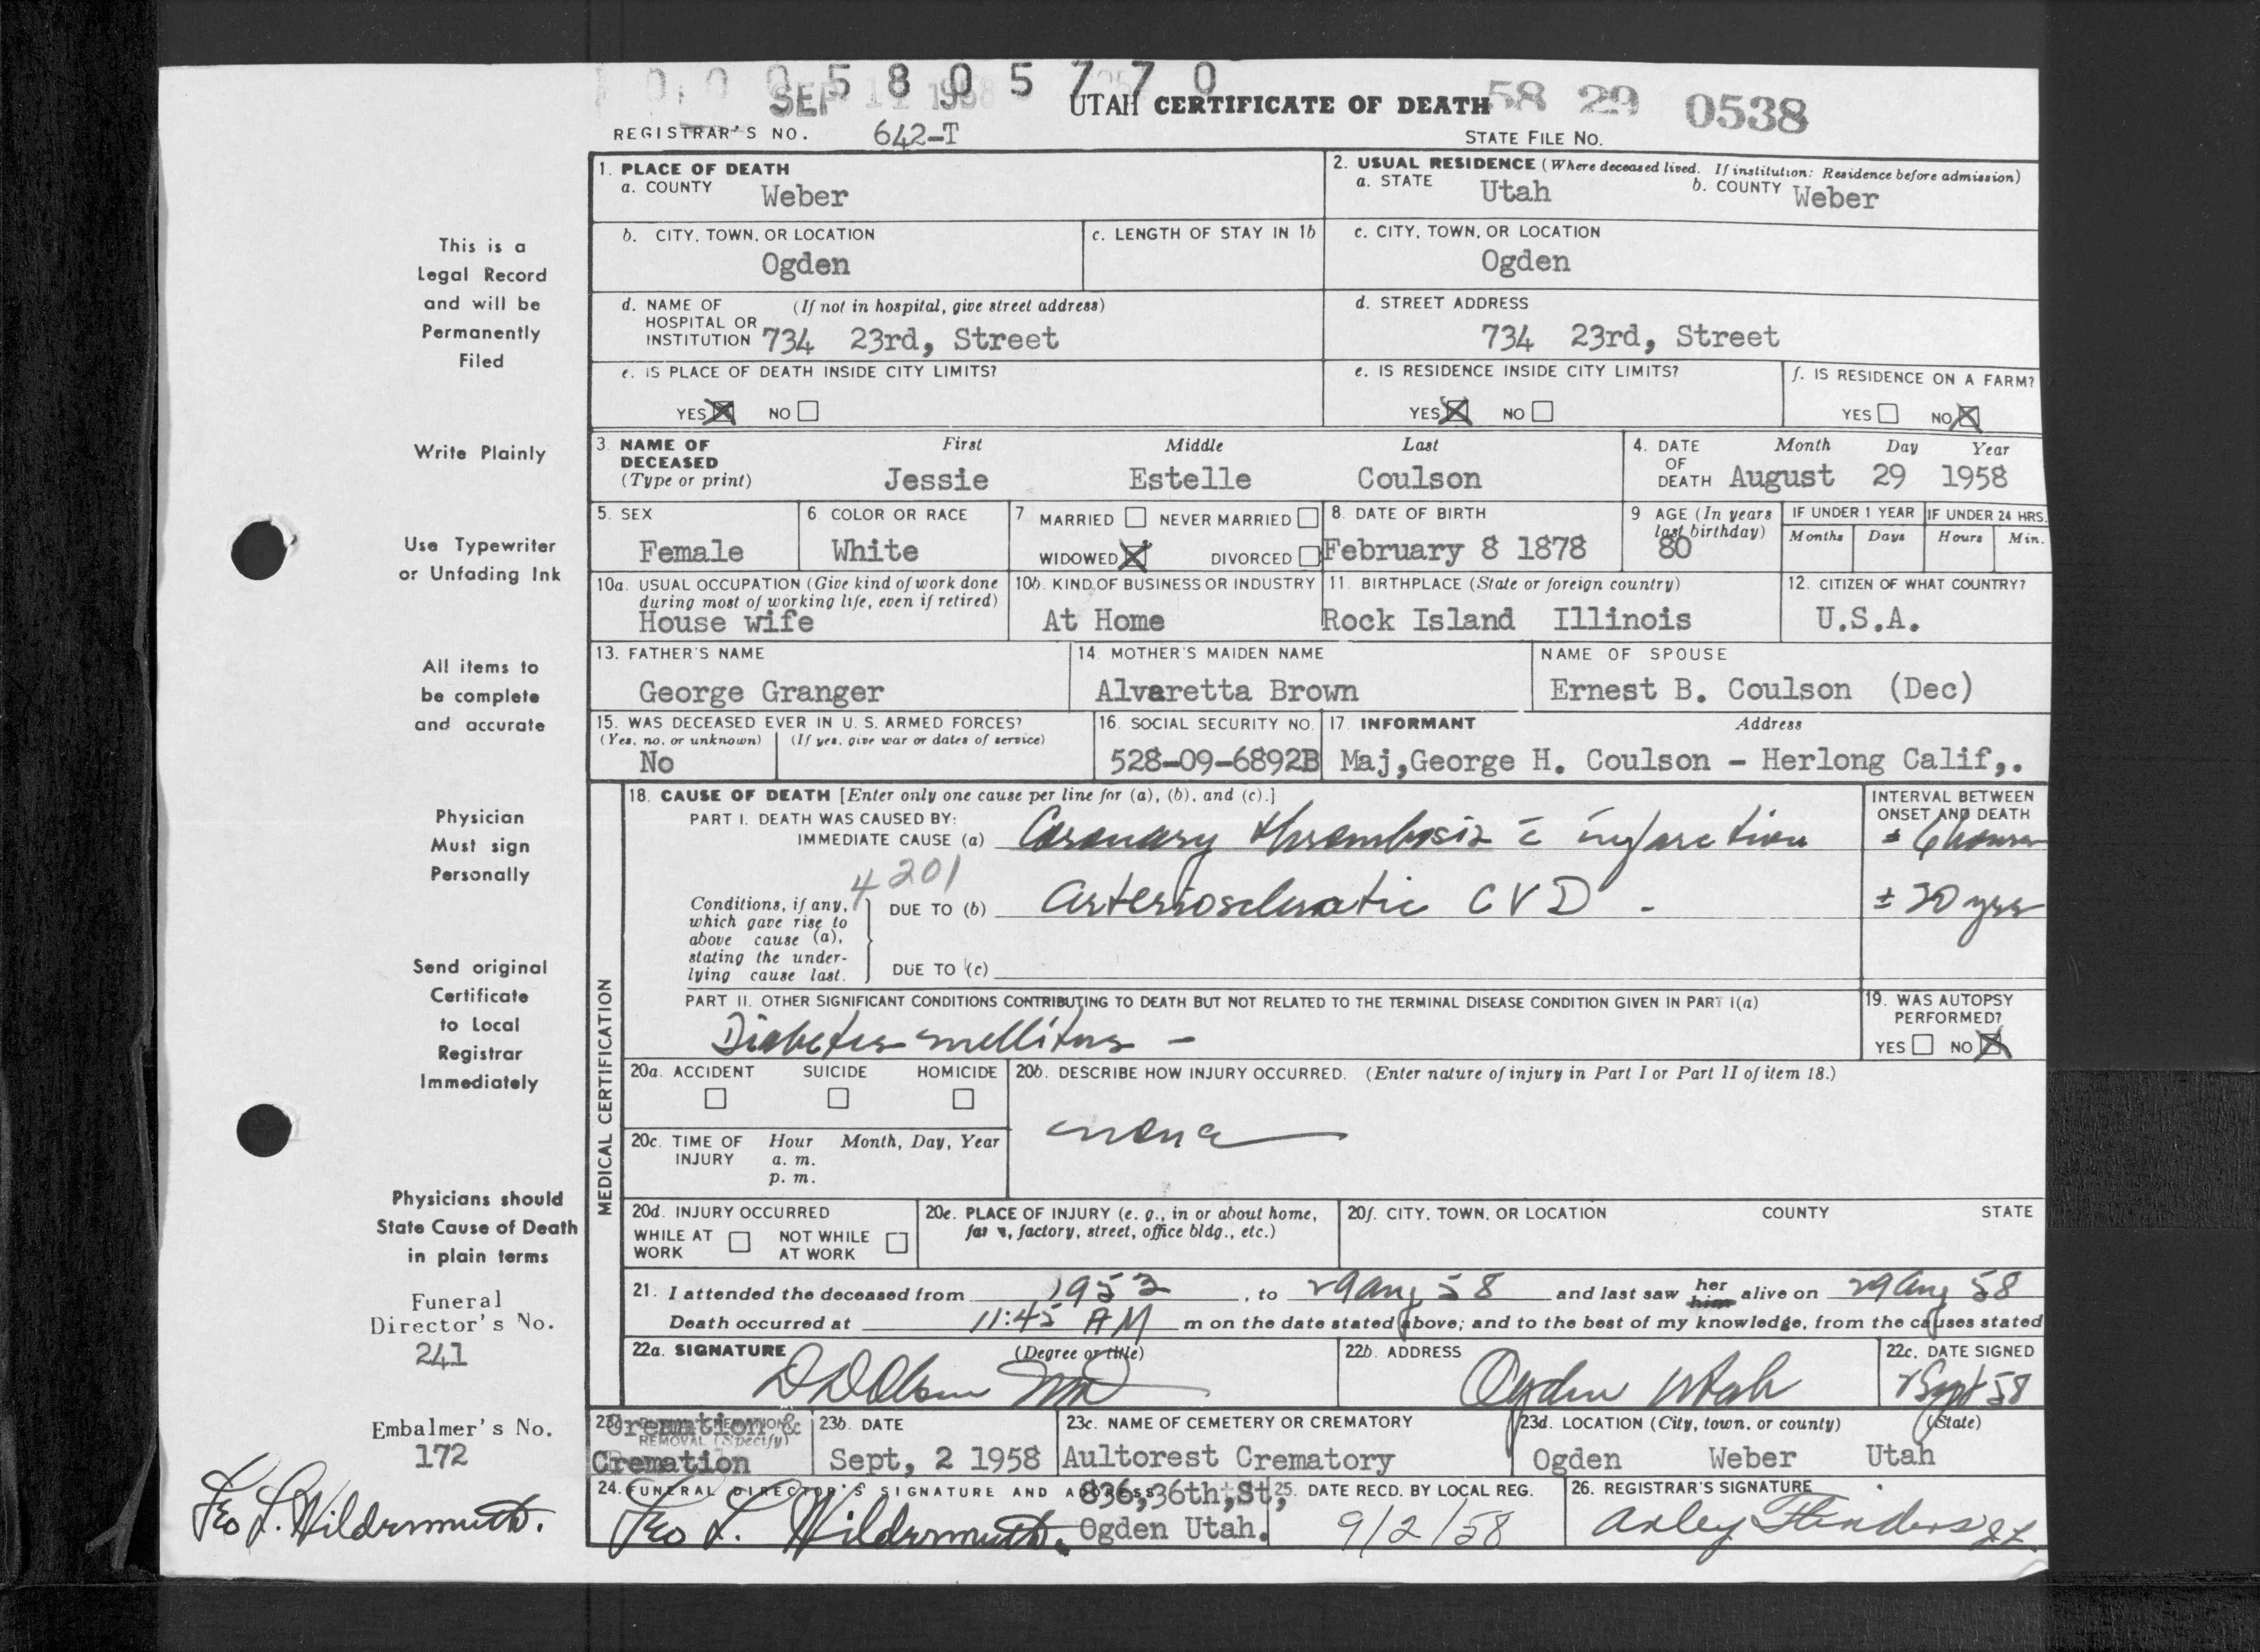 0 0 0 5 8 0 5 7 7 0
SEP 11 1958
UTAH CERTIFICATE OF DEATH
58 29 0538
REGISTRAR'S NO. 642-T
STATE FILE NO.
1. PLACE OF DEATH
a. COUNTY Weber
2. USUAL RESIDENCE (Where deceased lived. If institution: Residence before admission)
a. STATE Utah b. COUNTY Weber
b. CITY, TOWN, OR LOCATION Ogden
c. LENGTH OF STAY IN 1b
c. CITY, TOWN, OR LOCATION Ogden
d. NAME OF HOSPITAL OR INSTITUTION (If not in hospital, give street address) 734 23rd, Street
d. STREET ADDRESS 734 23rd, Street
e. IS PLACE OF DEATH INSIDE CITY LIMITS?
YES NO
e. IS RESIDENCE INSIDE CITY LIMITS?
YES NO
f. IS RESIDENCE ON A FARM?
YES NO
3. NAME OF DECEASED (Type or print)
First Middle Last
Jessie Estelle Coulson
4. DATE OF DEATH
Month Day Year
August 29 1958
5. SEX Female
6 COLOR OR RACE White
7 MARRIED NEVER MARRIED
WIDOWED DIVORCED
8. DATE OF BIRTH February 8 1878
9 AGE (In years last birthday) 80
IF UNDER 1 YEAR
Months Days
IF UNDER 24 HRS.
Hours Min.
10a. USUAL OCCUPATION (Give kind of work done during most of working life, even if retired)
House wife
10b. KIND OF BUSINESS OR INDUSTRY
At Home
11. BIRTHPLACE (State or foreign country)
Rock Island Illinois
12. CITIZEN OF WHAT COUNTRY?
U.S.A.
13. FATHER'S NAME
George Granger
14. MOTHER'S MAIDEN NAME
Alvaretta Brown
NAME OF SPOUSE
Ernest B. Coulson (Dec)
15. WAS DECEASED EVER IN U. S. ARMED FORCES?
(Yes, no, or unknown) (If yes, give war or dates of service)
No
16. SOCIAL SECURITY NO.
528-09-6892B
17. INFORMANT Address
Maj,George H. Coulson - Herlong Calif,.
MEDICAL CERTIFICATION
18. CAUSE OF DEATH [Enter only one cause per line for (a), (b), and (c).]
INTERVAL BETWEEN ONSET AND DEATH
PART I. DEATH WAS CAUSED BY:
IMMEDIATE CAUSE (a) Coronary thrombosis c̄ infarction ± 6 hours
4201
Conditions, if any, which gave rise to above cause (a), stating the underlying cause last.
DUE TO (b) arteriosclerotic CVD - ± 20 yrs
DUE TO (c)
PART II. OTHER SIGNIFICANT CONDITIONS CONTRIBUTING TO DEATH BUT NOT RELATED TO THE TERMINAL DISEASE CONDITION GIVEN IN PART I(a)
Diabetes mellitus -
19. WAS AUTOPSY PERFORMED?
YES NO
20a. ACCIDENT SUICIDE HOMICIDE
20b. DESCRIBE HOW INJURY OCCURRED. (Enter nature of injury in Part I or Part II of item 18.)
none
20c. TIME OF INJURY Hour Month, Day, Year
a. m.
p. m.
20d. INJURY OCCURRED
WHILE AT WORK NOT WHILE AT WORK
20e. PLACE OF INJURY (e. g., in or about home, farm, factory, street, office bldg., etc.)
20f. CITY, TOWN, OR LOCATION COUNTY STATE
21. I attended the deceased from 1953, to 29 Aug 58 and last saw her him alive on 29 Aug 58
Death occurred at 11:45 AM m on the date stated above; and to the best of my knowledge, from the causes stated
22a. SIGNATURE (Degree or title)
D D Olson MD
22b. ADDRESS
Ogden Utah
22c. DATE SIGNED
2 Sept 58
23a. REMOVAL (Specify)
Cremation &
Cremation
23b. DATE
Sept, 2 1958
23c. NAME OF CEMETERY OR CREMATORY
Aultorest Crematory
23d. LOCATION (City, town, or county) (State)
Ogden Weber Utah
24. FUNERAL DIRECTOR'S SIGNATURE AND ADDRESS
836, 36th, St,
Leo L. Wildermuth. Ogden Utah.
25. DATE RECD. BY LOCAL REG.
9/2/58
26. REGISTRAR'S SIGNATURE
This is a
Legal Record
and will be
Permanently
Filed
Write Plainly
Use Typewriter
or Unfading Ink
All items to
be complete
and accurate
Physician
Must sign
Personally
Send original
Certificate
to Local
Registrar
Immediately
Physicians should
State Cause of Death
in plain terms
Funeral
Director's No.
241
Embalmer's No.
172
Leo L. Wildermuth.